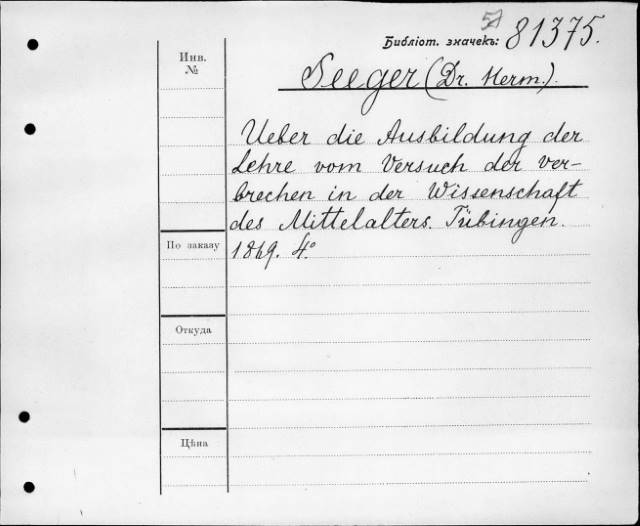 Библіот. значекъ: 81375.
Инв.
№
Seeger (Dr. Herm.).
Ueber die Ausbildung der
Lehre vom Versuch der Ver-
brechen in der Wissenschaft
des Mittelalters. Tübingen.
1869. 4°
По заказу
Откуда
Цѣна